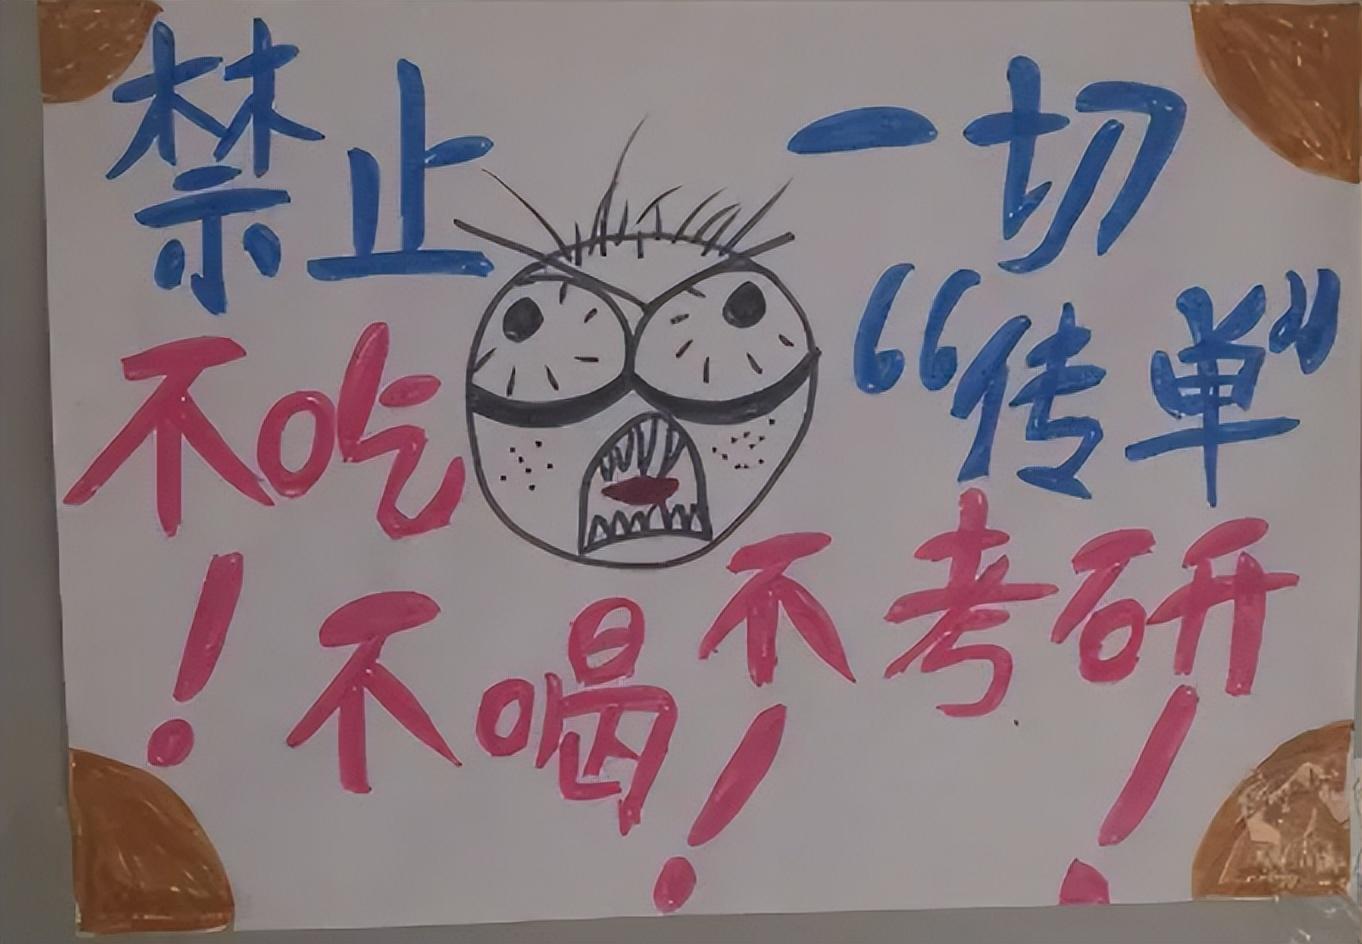 禁止一切
“传单”
不吃！
不喝！
不考研！